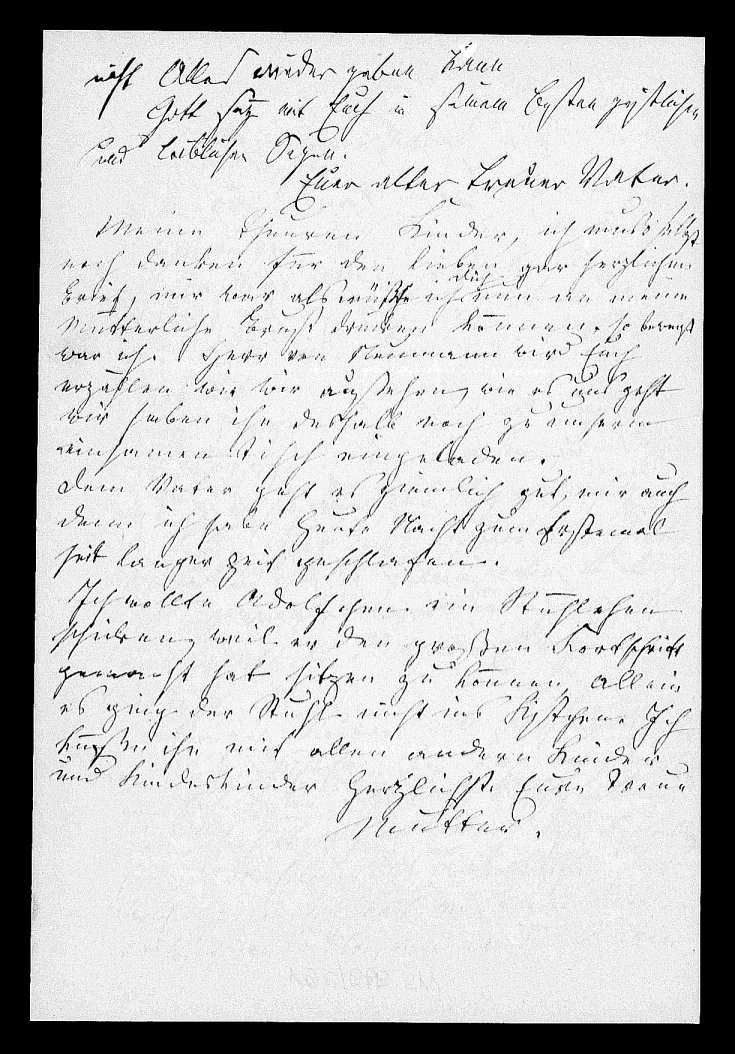 nicht Alles wieder geben kann
Gott sey mit Euch in seinem besten geistlichen
und leiblichen Segen.
Euer alter treuer Vater.
Meine theuren Kinder, ich muss selbst
noch danken für den lieben gar herzlichen
Brief, mir war als müsste ich Dich nun an meine
Mütterliche Brust drücken können, so bewegt
war ich. Herr von Neumann wird Euch
erzählen wie wir aussehen, wie es uns geht
wir haben ihn deshalb noch zu unserm
einsamen Tisch eingeladen.
Dem Vater geht es ziemlich gut, mir auch
denn ich habe Heute Nacht zum Erstenmal
seit langer Zeit geschlafen.
Ich wollte Adolfchen ein Stühlchen
schicken, weil er den großen Fortschritt
gemacht hat sitzen zu können, allein
es ging der Stuhl nicht ins Kistchen. Ich
küsse ihn mit allen andern Kinder
und Kindeskinder Herzlichst. Eure Treue
Mutter.